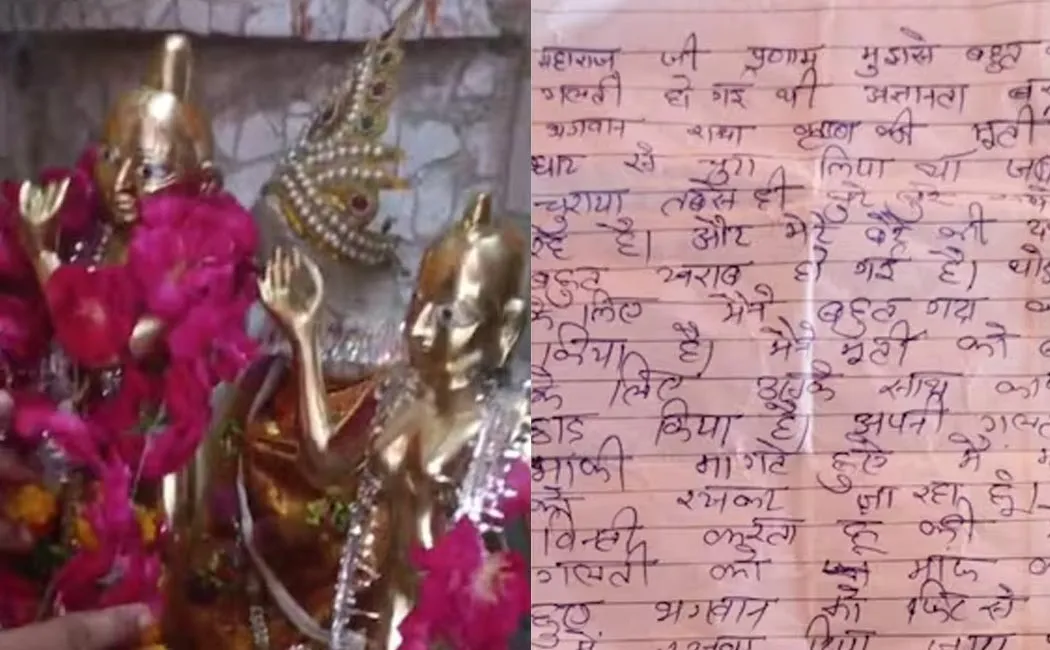 महाराज जी प्रणाम मुझसे बहुत
गलती हो गई थी अज्ञानता
भगवान राधा कृष्ण की मूर्ती
से चुरा लिया था
चुराया तबसे ही बुरे
रहे है। और मेरे बेटे की
बहुत खराब हो गई है। थोड़
के लिए मैने बहुत गंदा
किया है। मैने मूर्ती को
के लिए उसके साथ
छाड़ किया है। अपनी गलत
माफी मागते हुए मै
रखकर जा रहा हूं।
विन्ती करता हू की
गलती को माफ
हुए भगवान को फिर से
रखवा दिया जाय